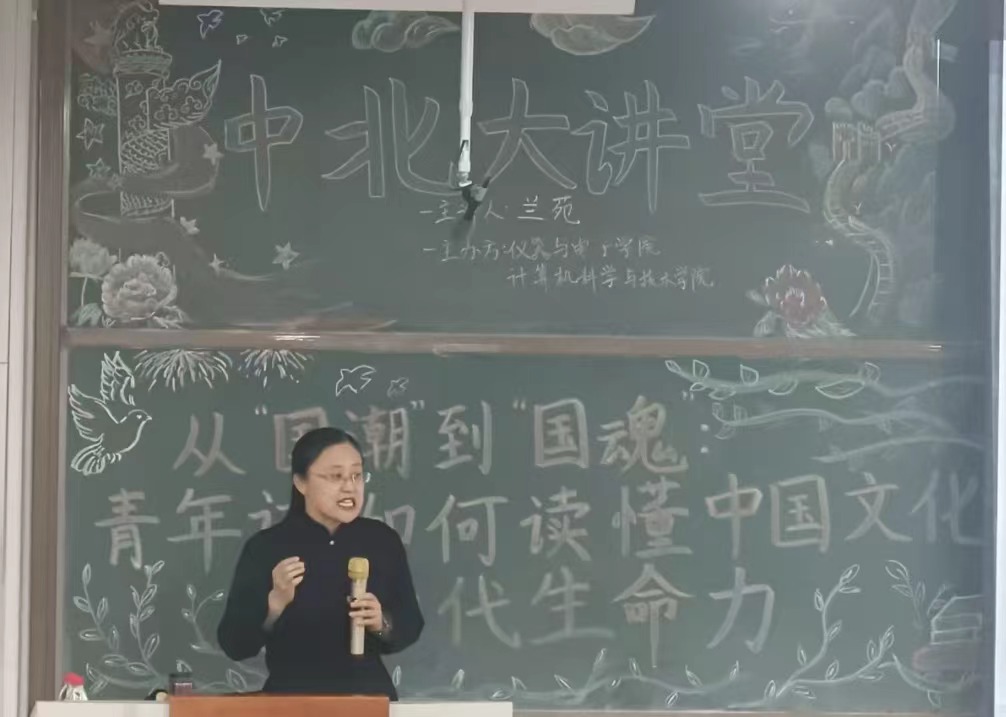 中北大讲堂
-主讲人:兰苑
-主办方:仪器与电子学院
计算机科学与技术学院
从“国潮”到“国魂”:
青年 如何读懂中国文化
代生命力